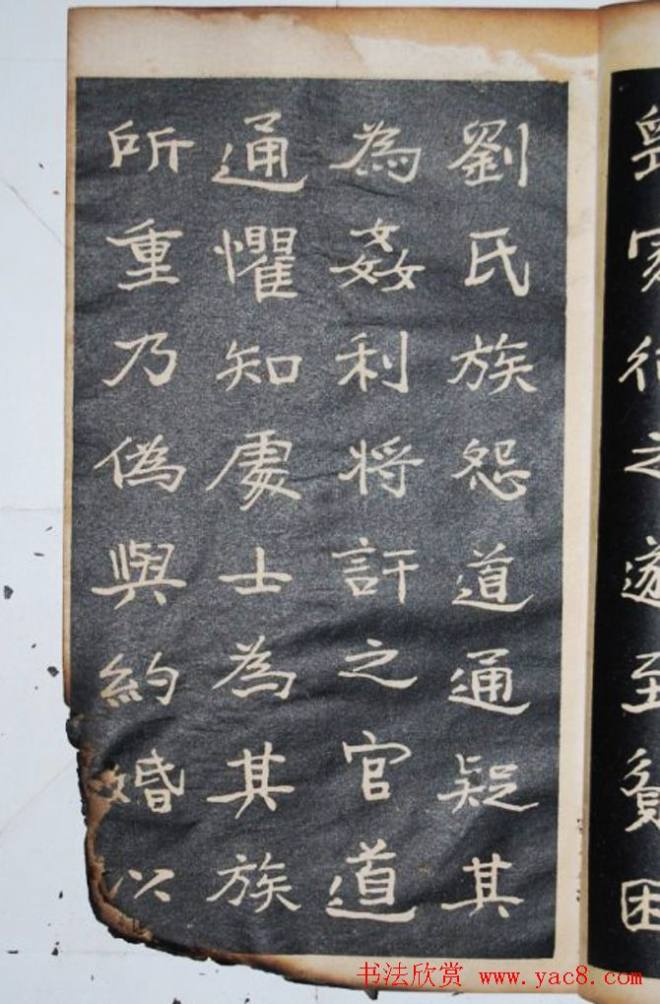 與家行之遂至貧困
劉氏族怨道通疑其
為姦利將訐之官道
通懼知處士為其族
所重乃偽與約婚以
书法欣赏 www.yac8.com